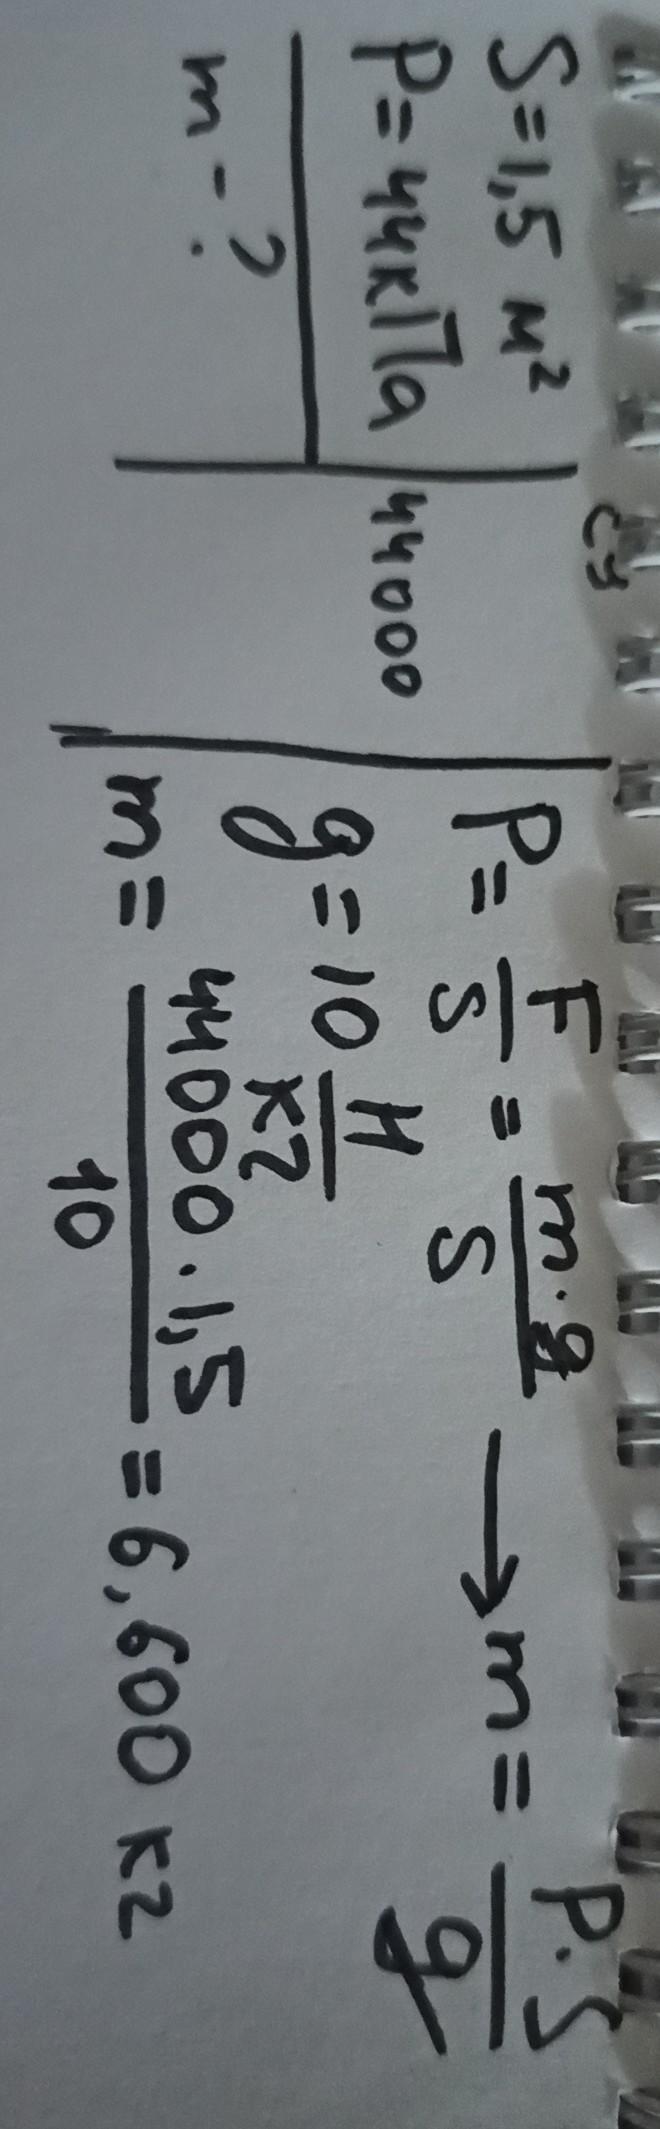 S = 1,5 м²
P = 44кПа
m - ?
СИ
44000
P = F/S = m·g/S → m = P·S/g
g = 10 Н/кг
m = 44000·1,5/10 = 6,600 кг